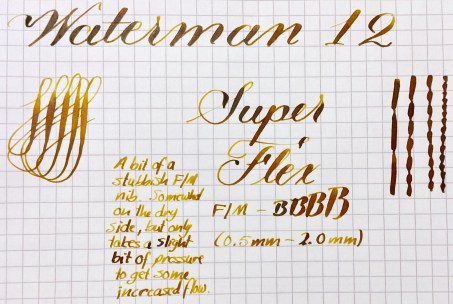 Waterman 12
Super
Flex
A bit of a
stubbish F/M
nib. Somewhat
on the dry
side, but only
takes a slight
bit of pressure
to get some
increased flow.
F/M - BBBB
(0.5mm - 2.0mm)